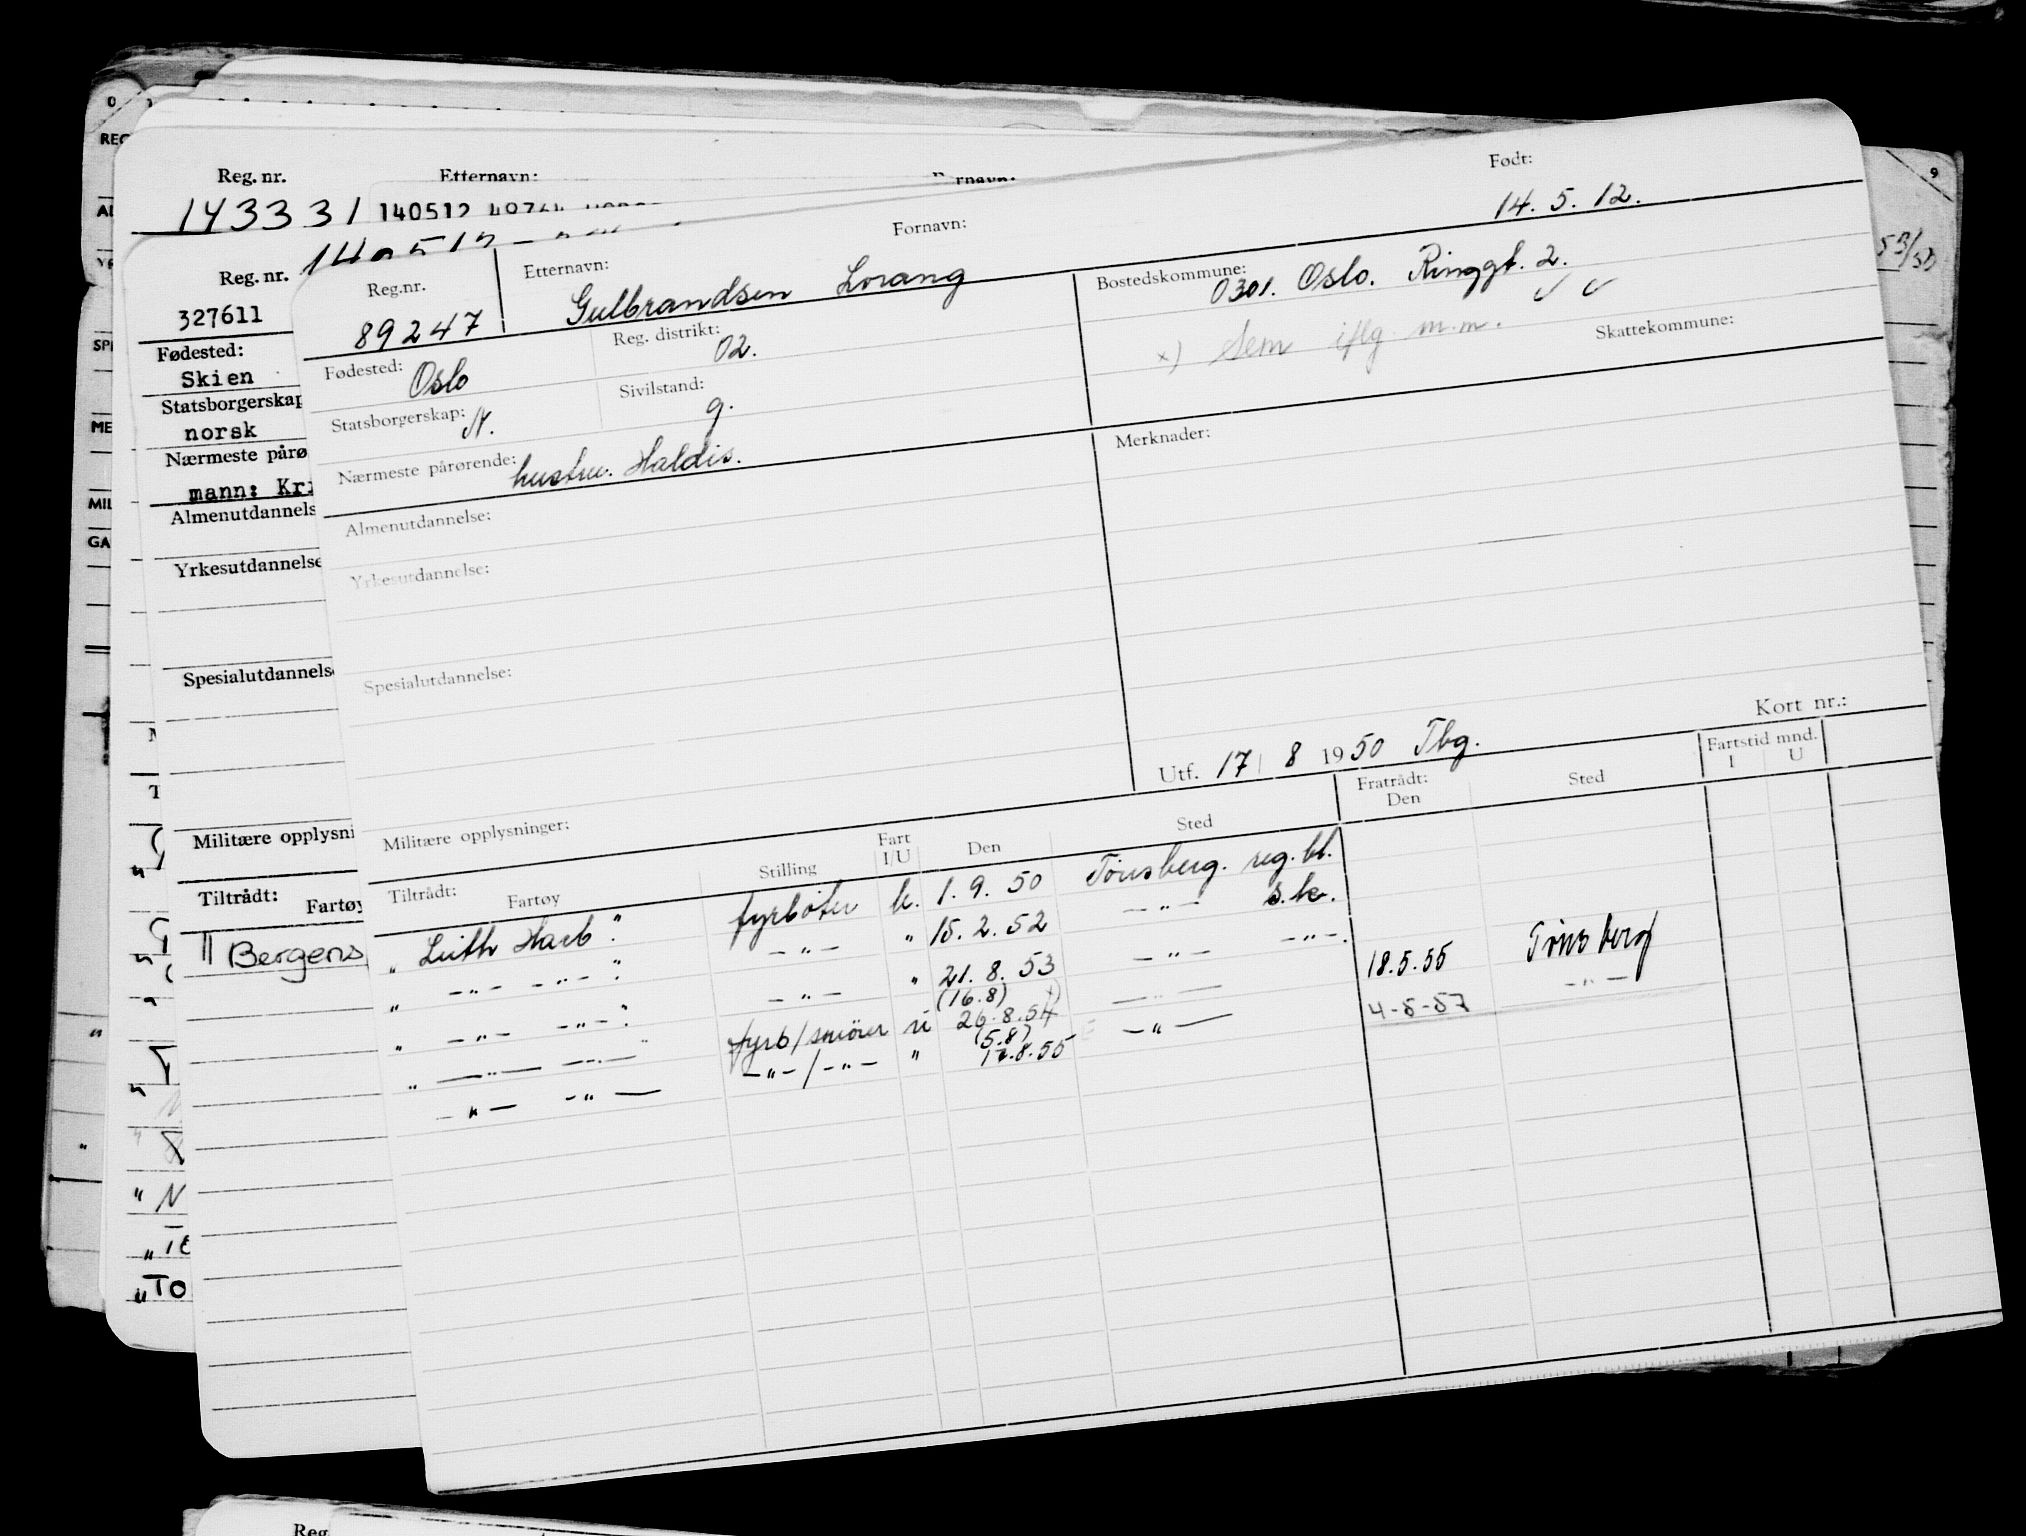 O
REG
Reg. nr. Etternavn:
143331 140512
Reg. nr.
327611
Fødested:
Skien
Statsborgerskap
norsk
Nærmeste pårø
mann: Kri
Almenutdannels
Yrkesutdannelse
Spesialutdannels
Militære opplysni
Tiltrådt:
Fartøy
" Bergens
Født:
14. 5. 12.
Reg.nr. Etternavn: Fornavn:
89247 Gulbrandsen Lorang
Bostedskommune:
0301. Oslo. Ringgt. 2.
x) Sem iflg. m.m.
Skattekommune:
Fødested: Oslo
Reg. distrikt: 02.
Statsborgerskap: N.
Sivilstand: g.
Nærmeste pårørende: hustru. Haldis.
Merknader:
Almenutdannelse:
Yrkesutdannelse:
Spesialutdannelse:
Utf. 17/ 8 1950 Tbg.
Kort nr.:
Militære opplysninger:
Tiltrådt: Fartøy Stilling Fart I/U Den Sted Fratrådt: Den Sted Fartstid mnd. I U
" fyrbøter 1. 9. 50 Tønsberg. reg. bl.
" -"- -"- -"- " 15. 2. 52 -"-
" -"- -"- -"- " 21. 8. 53 -"- -"-.
(16.8) x)
" -"- -"- fyrb/smører u 26.8.54 -"- 18.5.55 Tønsberg
(5.8)
-"- -"- -"-/-"- " 12.8.55 -"- 4-5-57 -"-
"
" N
"TO
Reg.